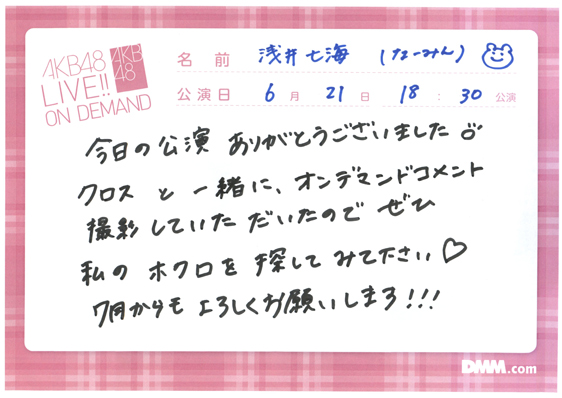 AKB48
LIVE!!
ON DEMAND
AKB
48
名前 浅井七海 (なーみん)
公演日 6月21日 18:30公演
今日の公演 ありがとうございました
クロスと一緒に、オンデマンドコメント
撮影していただいたので ぜひ
私のホクロを探してみて下さい♡
7月からもよろしくお願いします!!!
DMM.com